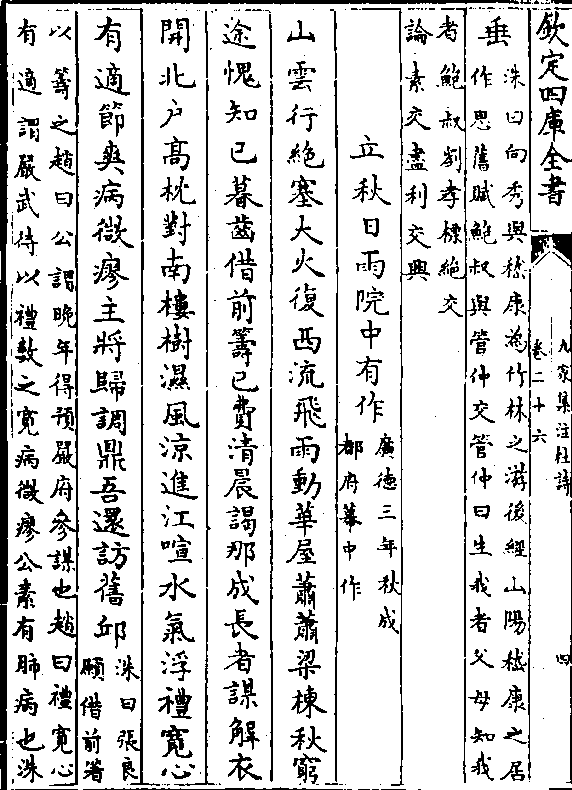 欽定四庫全書
九家集注杜詩
卷二十六
四
洙曰向秀與嵇康為竹林之遊後經山陽嵇康之居
垂作思舊賦鮑叔與管仲交管仲曰生我者父母知我
者鮑叔劉孝標絶交
論素交盡利交興
立秋日雨院中有作
廣德三年秋成
都府幕中作
山雲行絶塞大火復西流飛雨動華屋蕭蕭梁棟秋窮
途愧知己暮齒借前籌已費清晨謁那成長者謀解衣
開北戶高枕對南樓樹濕風涼進江喧水氣浮禮寛心
有適節爽病微瘳主將歸調鼎吾還訪舊邱
洙曰張良
願借前箸
以籌之趙曰公謂晚年得預嚴府參謀也趙曰禮寛心
有適謂嚴武待以禮數之寛病微瘳公素有肺病也洙